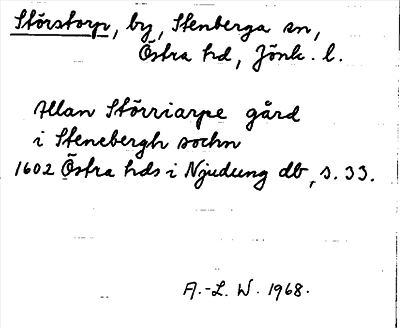 Störstorp, by, Stenberga sn,
Östra hd, Jönk. l.
Allan Störriarpe gård
i Stenebergh sochn
1602 Östra hds i Njudung db, s. 33.
A.-L. W. 1968.